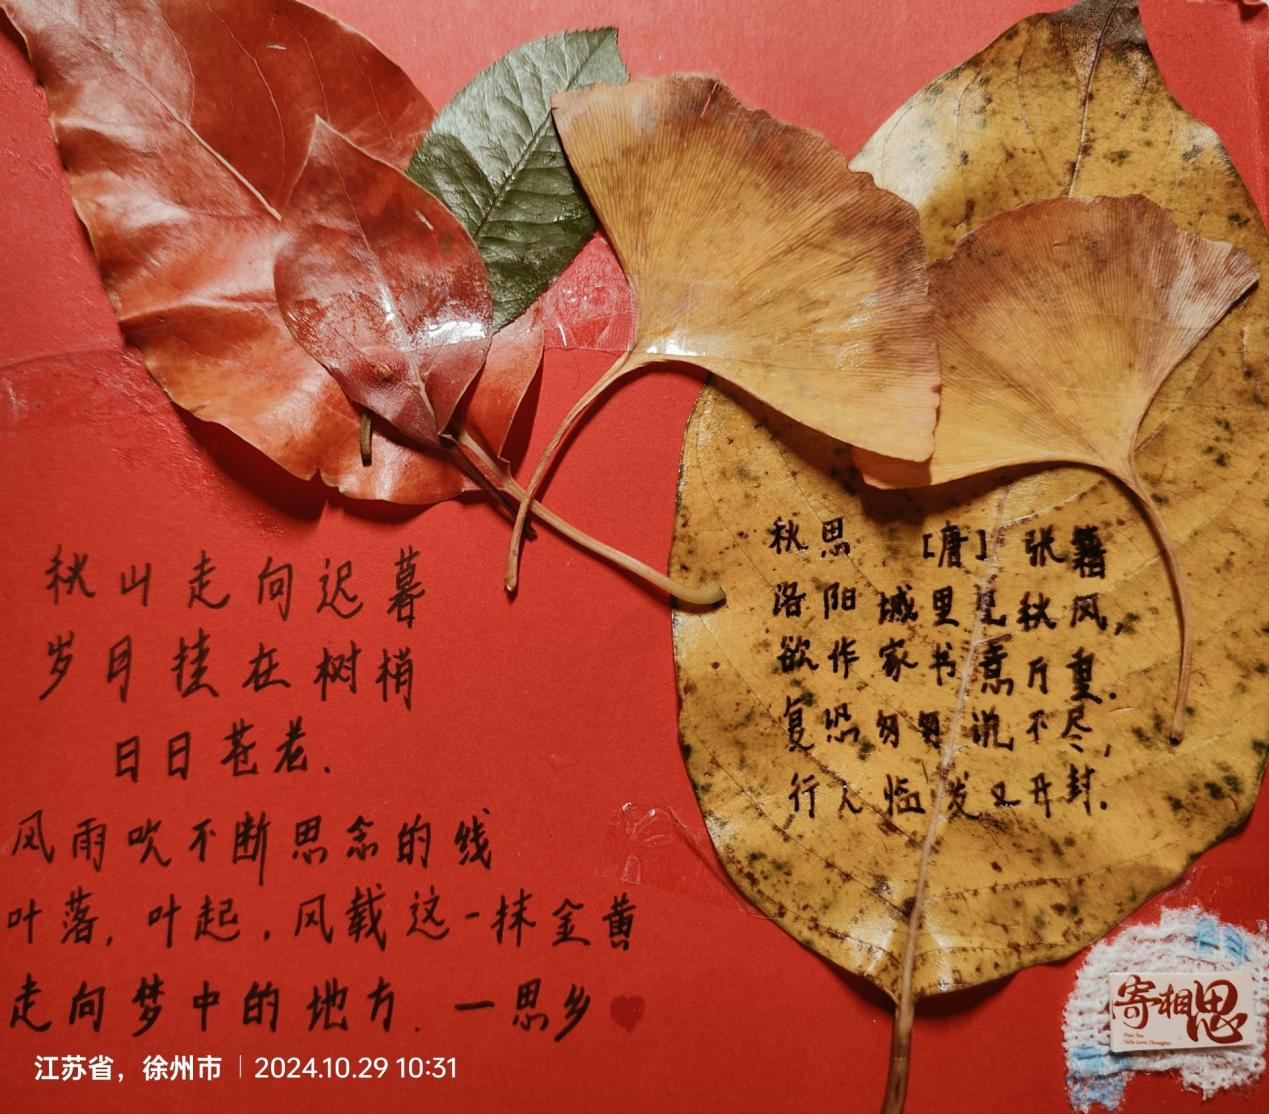 秋山走向迟暮
岁月挂在树梢
日日苍老.
风雨吹不断思念的线
叶落,叶起,风载这一抹金黄
走向梦中的地方.一思乡
秋思 [唐] 张籍
洛阳城里见秋风,
欲作家书意万重.
复恐匆匆说不尽,
行人临发又开封.
寄相思
江苏省，徐州市 | 2024.10.29 10:31